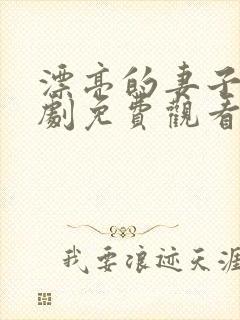 漂亮的妻子
劇免費觀看
我要浪迹天涯